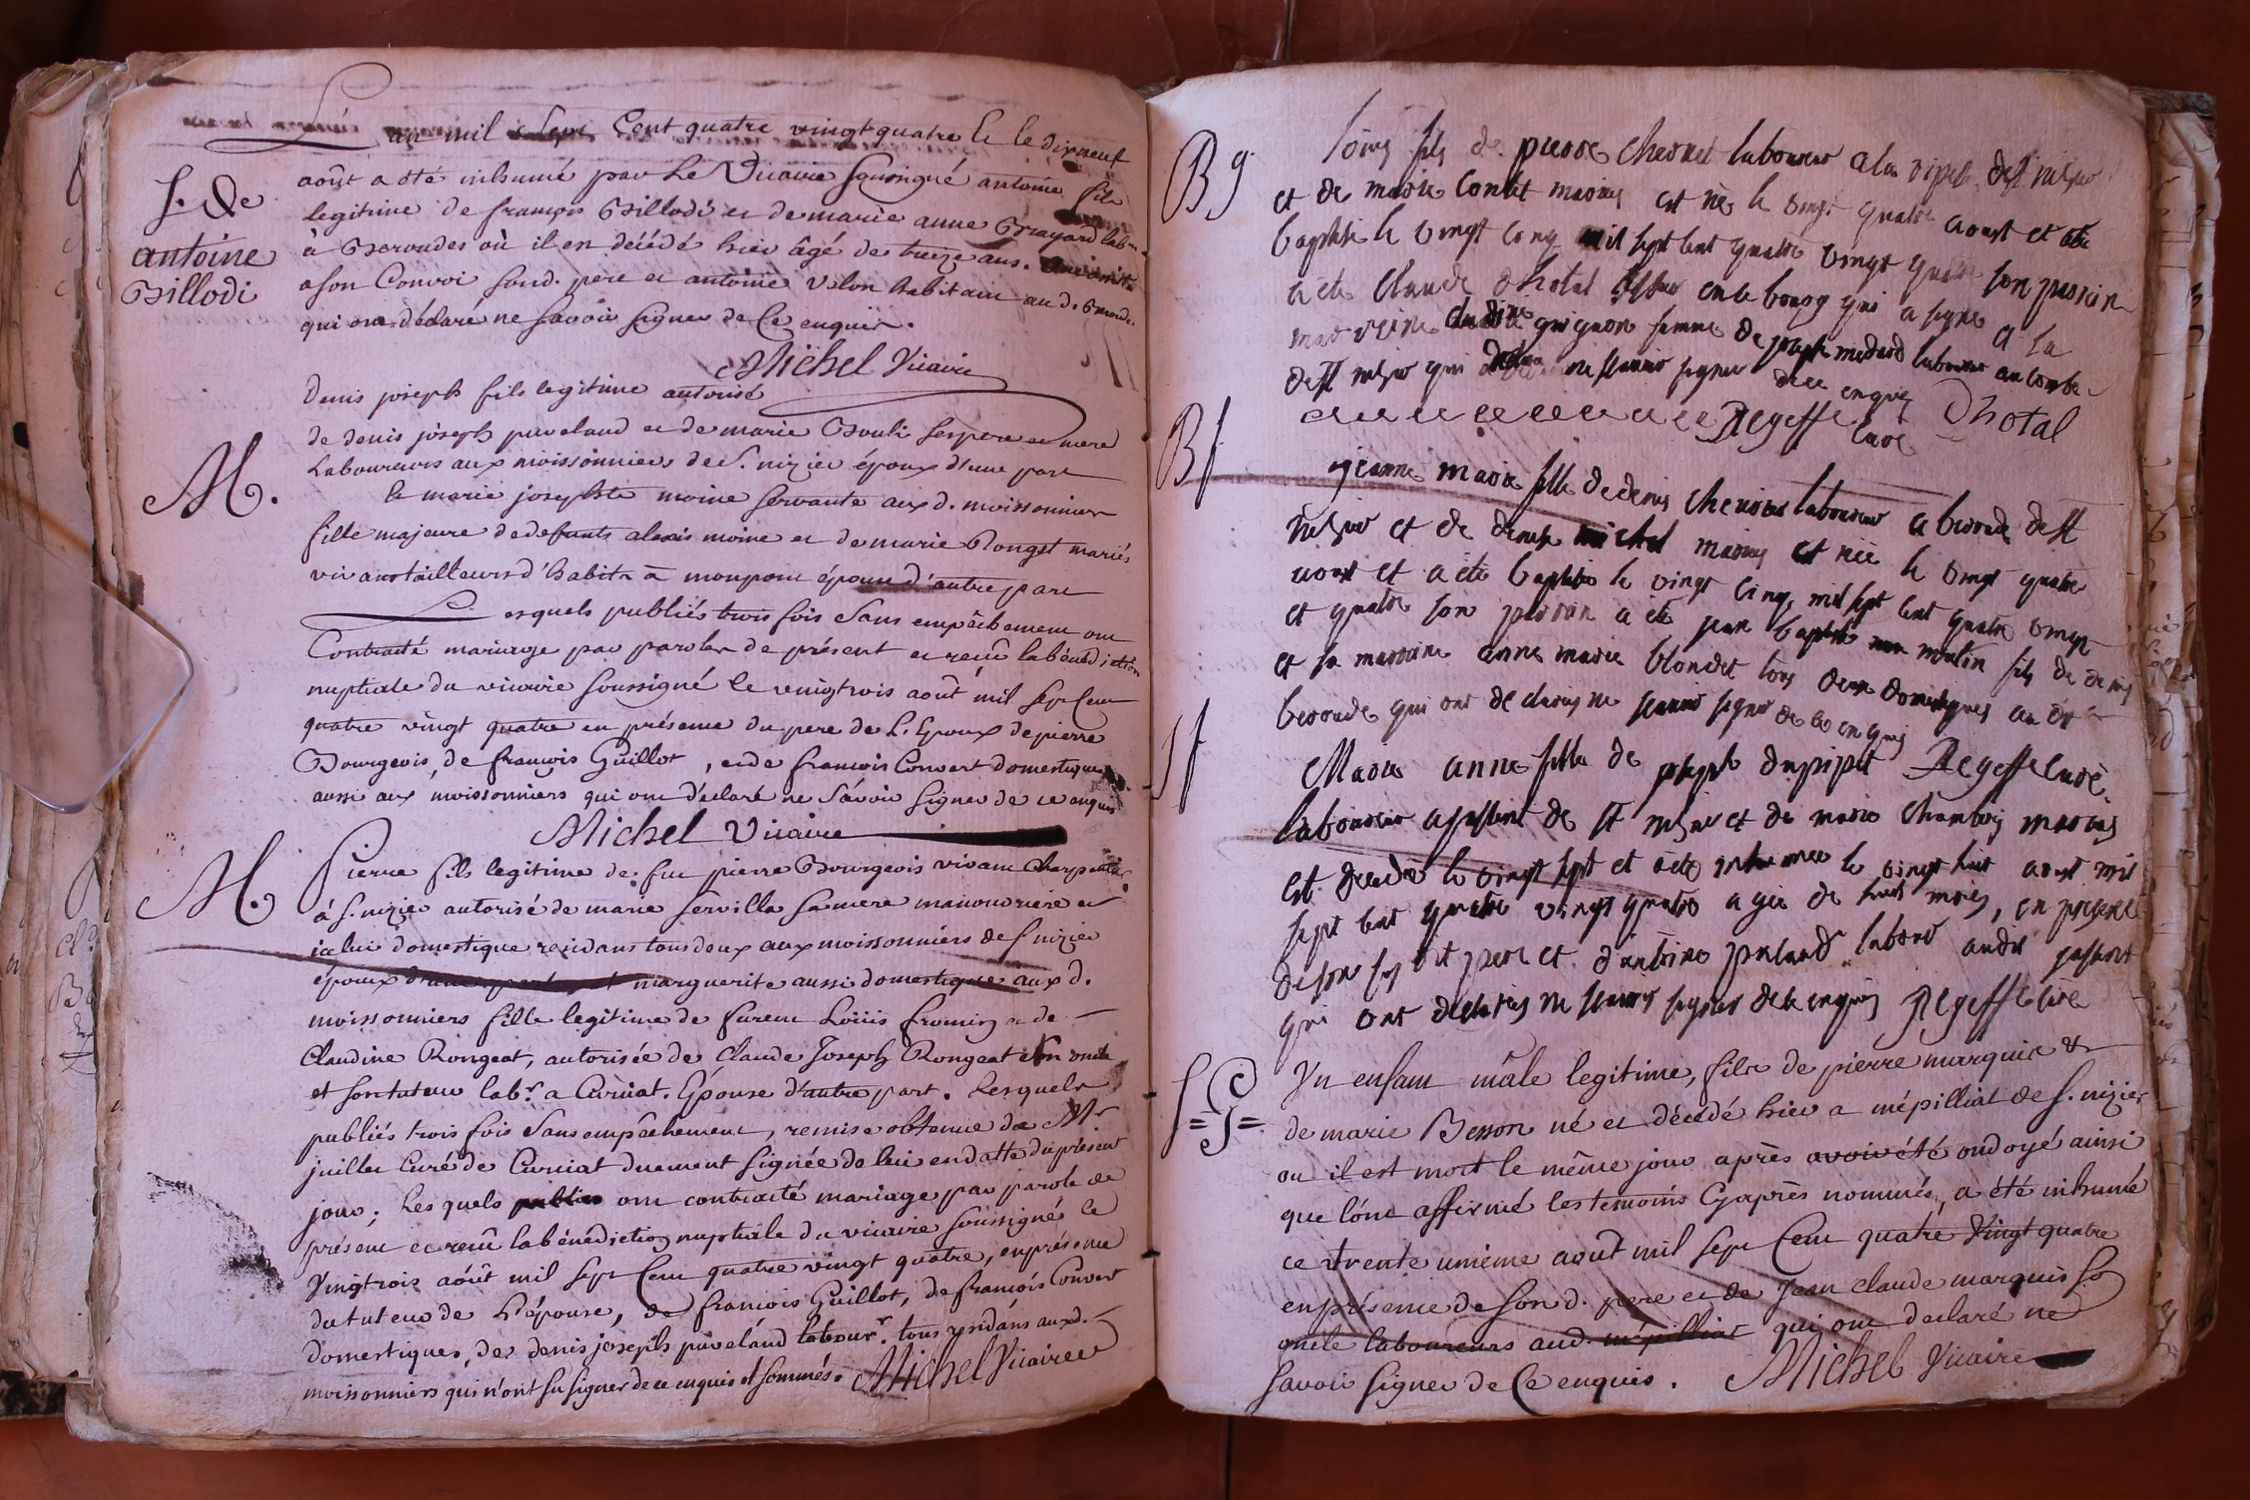 L'an mil Sept Cent quatre vingt quatre Et le dixneuf
S. De
antoine
Billodi
août a été inhumé par Le Vicaire Soussigné antoine fils
legitime de françois Billodi et de marie anne Brayard lab.rs
à Beroudes où il en décédé hier âgé de treize ans.
a son Convoi son d. père et antoine Velon habitant au d.
qui ont déclaré ne Savoir Signer de Ce enquis.
Michel Vicaire
Denis joseph fils legitime autorisé
M.
de denis joseph puveland et de marie Bouli ses pere et mere
Laboureurs aux moissonniers de S. nizier époux d'une part
Et marie josephte moine servante aux d. moissonniers
fille majeure de defunts alexis moine et de marie Ronget mariés
vivants tailleurs d'habits à monpont épouse d'autre part
Lesquels publiés trois fois Sans empêchement ont
Contracté mariage par paroles de présent et reçu la bénédiction
nuptiale du vicaire soussigné le vingtrois août mil sept Cent
quatre vingt quatre en présence du pere de L'Epoux de pierre
Bourgeois, de françois Guillot, et de françois Convert domestiques
aussi aux moissonniers qui ont déclaré ne Savoir Signer de ce enquis
Michel Vicaire
M.
Pierre fils legitime de feu pierre Bourgeois vivant charpentier
à S. nizier autorisé de marie servilla sa mere manouvriere et
icelui domestique residans tous deux aux moissonniers de S nizier
époux d'une part et marguerite aussi domestique aux d.
moissonniers fille legitime de furent Loüis fromin et de
Claudine Rongeat, autorisée de Claude Joseph Rongeat son oncle
et son tuteur lab.r a Curciat. Epouse d'autre part. Lesquels
publiés trois fois Sans empêchement, remise obtenue de Mr
juillet Curé de Curciat duement Signée de lui en datte du présent
jour; Lesquels publiés ont contracté mariage par parole de
présent et reçu la bénédiction nuptiale du vicaire soussigné le
Vingtrois août mil sept Cent quatre vingt quatre, en présence
du tuteur de L'épouse, de françois Guillot, de françois Convert
domestiques, de denis joseph puveland labour.r tous residans aux d.
moissonniers qui n'ont su signer de ce enquis et sommés. Michel Vicaire
B g
loüis fils de pierre Chevret laboureur a la
et de marie Contet mariés est né le vingt quatre aoust et été
baptisé le vingt cinq mil sept cent quatre vingt quatre son parrin
a été Claude dhotal en le bourg qui a signé et la
marreine grignon femme de joseph medard laboureur au
de st nizier qui ne scavoir signer de ce enquis
Regeffe curé Dhotal
B f
jeanne marie fille de denis laboureur a beroude de st
nizier et de denise michel mariés est née le vingt quatre
aoust et a été baptisée le vingt cinq mil sept cent quatre vingt
et quatre son parrin a été jean baptiste moulin fils de denis
et sa marreine anne marie blondet tous deux domestiques au dt
beroude qui ont declarés ne scavoir signer de ce enquis
Regeffe curé
S f
Marie anne fille de joseph dupiput
laboureur a de st nizier et de marie Chambis mariés
est decedée le vingt sept et a été inhumée le vingt huit aoust mil
sept cent quatre vingt quatre agée de huit mois, en presence
de son su dit pere et d'antoine puvland labour au dit
qui ont declarés ne scavoir signer de ce enquis Regeffe curé
S G
Un enfant mâle legitime, fils de pierre marquis et
de marie Besson né et décédé hier a mépilliat de S. nizier
ou il est mort le même jour après avoir été ondoyé ainsi
que l'ont affirmé les temoins Cy après nommés, a été inhumé
ce trente unième août mil sept Cent quatre Vingt quatre
en présence de son d. pere et de Jean Claude marquis so
oncle laboureurs au d. mépilliat qui ont declaré ne
Savoir Signer de Ce enquis. Michel Vicaire